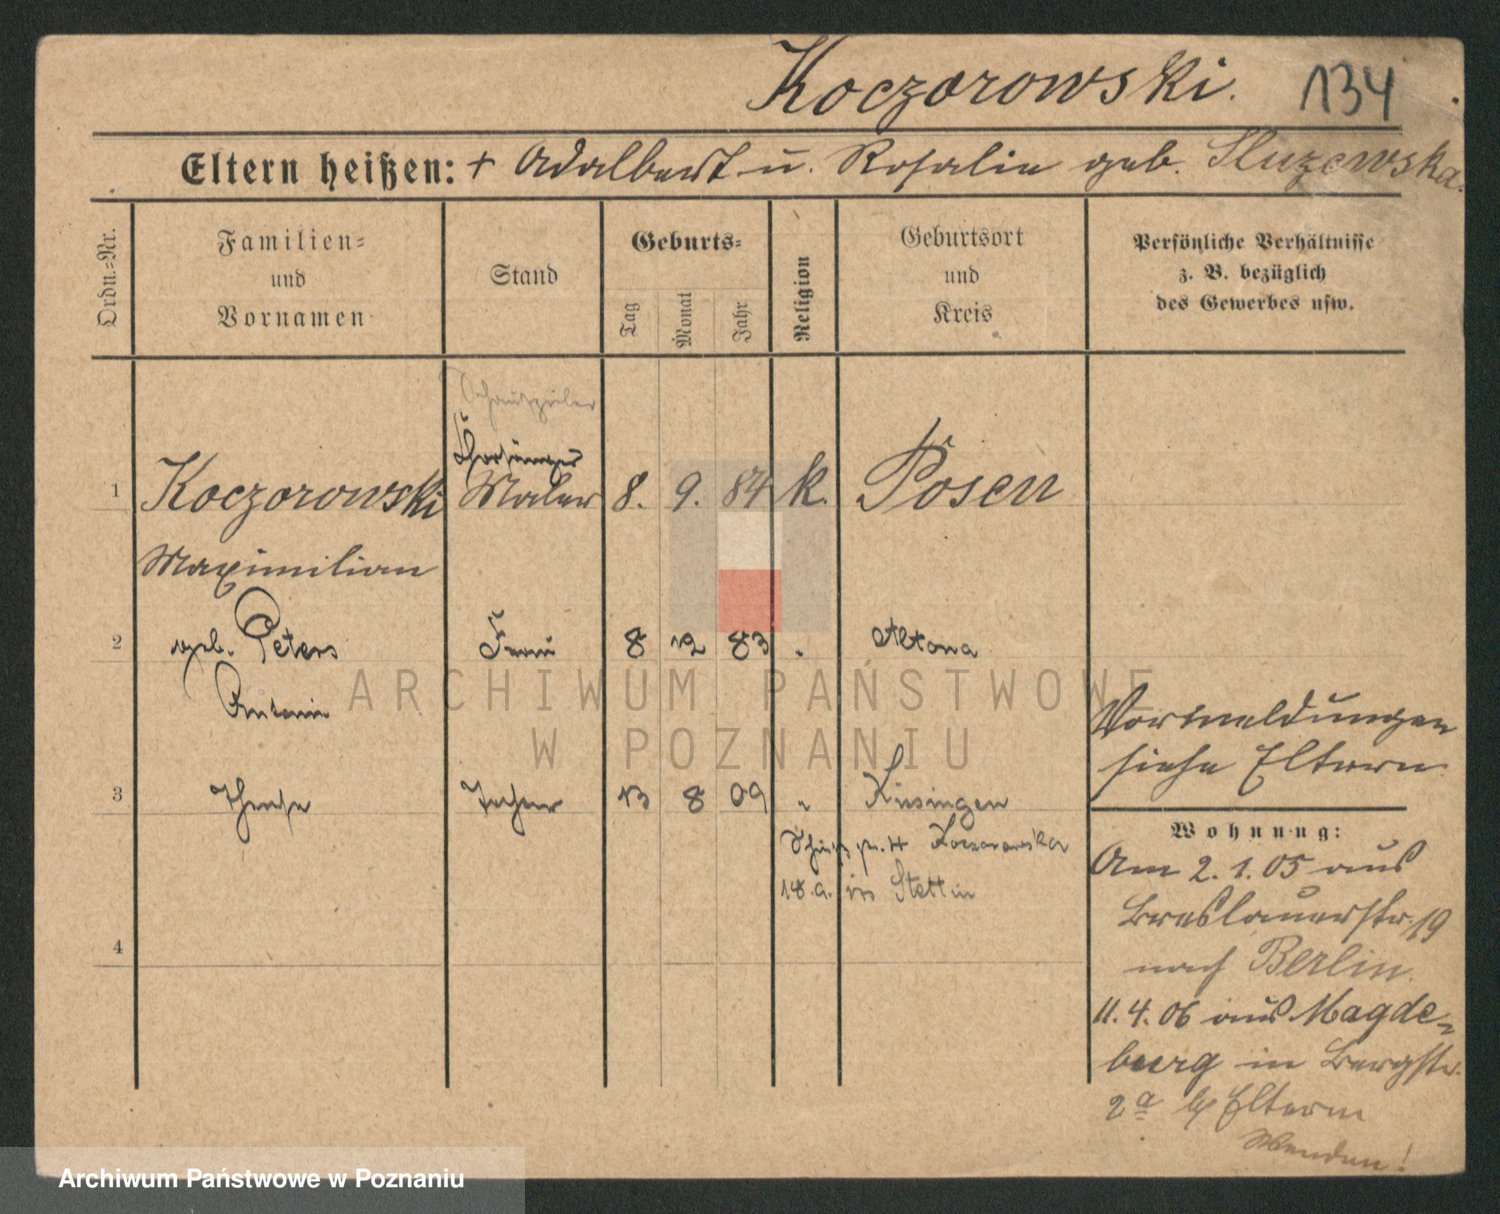 Koczorowski. 134
Eltern heißen: + Adalbert u. Rosalie geb. Sluzewska.
Ordn.-Nr.
Familien-
und
Vornamen
Stand
Geburts-
Tag
Monat
Jahr
Religion
Geburtsort
und
Kreis
Persönliche Verhältnisse
z. B. bezüglich
des Gewerbes usw.
Schauspieler
Chorsänger
1 Koczorowski Maler 8. 9. 84 k. Posen
Maximilian
2 geb. Peters Frau 8 12 83 " Altona
Antonie
3 Tochter 13 8 09 " Kissingen
Koczorowska
18.a. in Stettin
4
Vormeldungen
siehe Eltern
Wohnung:
Am 2. 1. 05 aus
Breslauerstr. 19
nach Berlin.
11. 4. 06 aus Magde-
burg in Bergstr.
2a b/ Eltern
Wenden!
ARCHIWUM PAŃSTWOWE
W POZNANIU
Archiwum Państwowe w Poznaniu